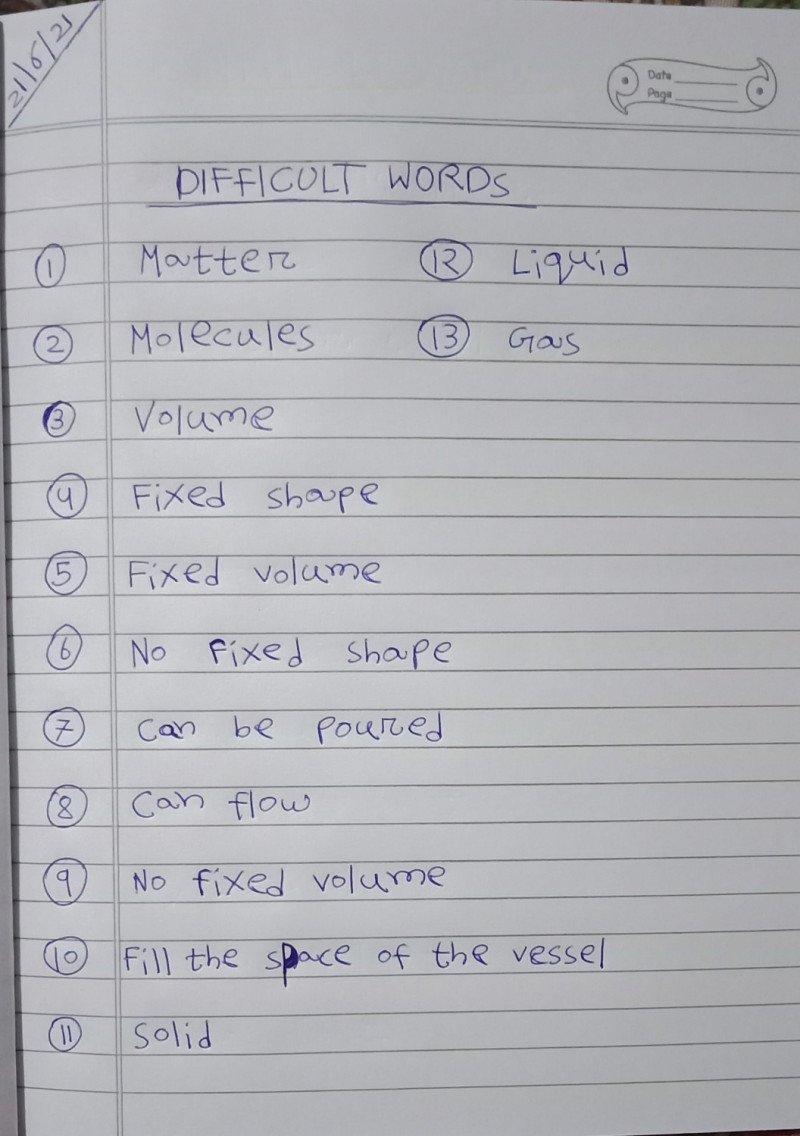 21/6/21
Data
Page
DIFFICULT WORDS
1 Matter
2 Molecules
3 Volume
4 Fixed shape
5 Fixed volume
6 No fixed shape
7 Can be poured
8 Can flow
9 No fixed volume
10 Fill the space of the vessel
11 Solid
12 Liquid
13 Gas